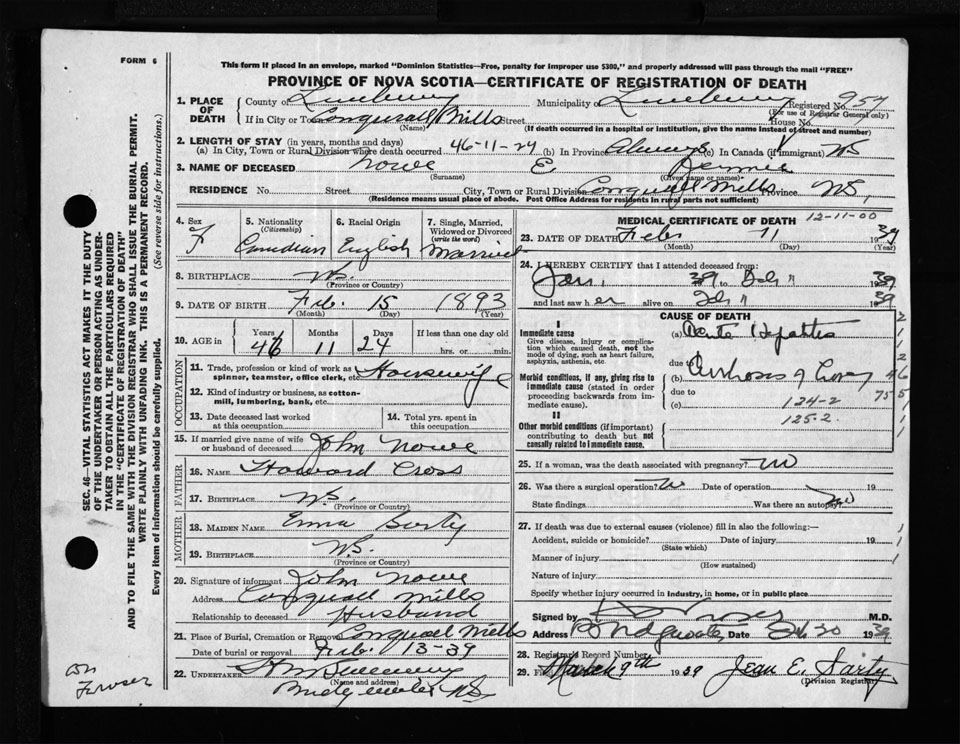 FORM 6
This form if placed in an envelope, marked "Dominion Statistics—Free, penalty for improper use $300," and properly addressed will pass through the mail "FREE"
PROVINCE OF NOVA SCOTIA—CERTIFICATE OF REGISTRATION OF DEATH
1. PLACE OF DEATH County of Lunenburg Municipality of Lunenburg Registered No. 957
(For use of Registrar General only)
If in City or Town Conquerall Mills Street House No.
(Name) (If death occurred in a hospital or institution, give the name instead of street and number)
2. LENGTH OF STAY (in years, months and days)
(a) In City, Town or Rural Division where death occurred 46-11-24 (b) In Province Always (c) In Canada (if immigrant) NS
3. NAME OF DECEASED Nowe E
(Surname) (Given name or names)
RESIDENCE No. Street City, Town or Rural Division Conquerall Mills Province N.S.
(Residence means usual place of abode. Post Office Address for residents in rural parts not sufficient)
4. Sex F
5. Nationality (Citizenship) Canadian
6. Racial Origin English
7. Single, Married, Widowed or Divorced (write the word) Married
8. BIRTHPLACE N.S.
(Province or Country)
9. DATE OF BIRTH Feb. 15 1893
(Month) (Day) (Year)
10. AGE in Years 46 Months 11 Days 24 If less than one day old hrs. or min.
OCCUPATION
11. Trade, profession or kind of work as spinner, teamster, office clerk, etc. Housewife
12. Kind of industry or business, as cotton-mill, lumbering, bank, etc.
13. Date deceased last worked at this occupation
14. Total yrs. spent in this occupation
15. If married give name of wife or husband of deceased John Nowe
FATHER
16. NAME Howard Cross
17. BIRTHPLACE N.S.
(Province or Country)
MOTHER
18. MAIDEN NAME Emma Sarty
19. BIRTHPLACE N.S.
(Province or Country)
20. Signature of informant John Nowe
Address Conquerall Mills
Relationship to deceased Husband
21. Place of Burial, Cremation or Removal Conquerall Mills
Date of burial or removal Feb. 13-39
22. UNDERTAKER
(Name and address)
Bridgewater NS
MEDICAL CERTIFICATE OF DEATH 12-11-00
23. DATE OF DEATH Feb 11 1939
(Month) (Day) (Year)
24. I HEREBY CERTIFY that I attended deceased from:
Jan. 39 to Feb 11 1939
and last saw her alive on Feb 11 1939
CAUSE OF DEATH
I
Immediate cause
Give disease, injury or complication which caused death, not the mode of dying, such as heart failure, asphyxia, asthenia, etc.
(a) Acute Hepatitis
due to
Morbid conditions, if any, giving rise to immediate cause (stated in order proceeding backwards from immediate cause).
(b) Cirrhosis of Liver
due to
(c) 124-2
II
125-2
Other morbid conditions (if important) contributing to death but not causally related to immediate cause.
25. If a woman, was the death associated with pregnancy? No
26. Was there a surgical operation? No Date of operation 19
State findings Was there an autopsy? No
27. If death was due to external causes (violence) fill in also the following:—
Accident, suicide or homicide? Date of injury 19
(State which)
Manner of injury
(How sustained)
Nature of injury
Specify whether injury occurred in industry, in home, or in public place
Signed by M.D.
Address Bridgewater Date Feb 20 1939
28. Registrar's Record Number
29. Filed March 9th 1939 Jean E. Sarty
(Division Registrar)
SEC. 46—VITAL STATISTICS ACT MAKES IT THE DUTY OF THE UNDERTAKER OR PERSON ACTING AS UNDERTAKER TO OBTAIN ALL THE PARTICULARS REQUIRED IN THE "CERTIFICATE OF REGISTRATION OF DEATH" AND TO FILE THE SAME WITH THE DIVISION REGISTRAR WHO SHALL ISSUE THE BURIAL PERMIT.
WRITE PLAINLY WITH UNFADING INK. THIS IS A PERMANENT RECORD.
Every item of information should be carefully supplied. (See reverse side for instructions.)